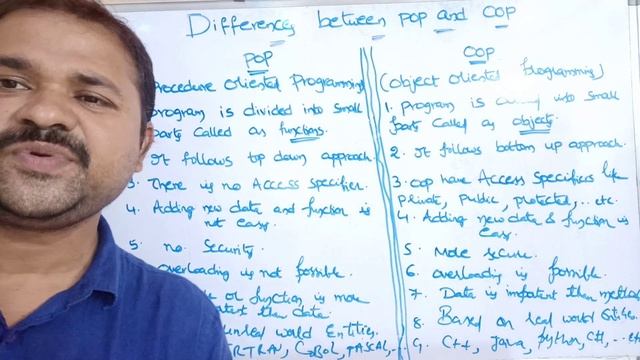 Differences between POP and OOP
POP
Procedure oriented Programming
program is divided into small
parts called as functions.
It follows top down approach.
3. There is no Access specifier.
4. Adding new data and function is
not easy.
5. no security.
overloading is not possible.
or function is more
than data.
world Entities.
COBOL, PASCAL,...
OOP
(object oriented Programming)
1. Program is into small
parts called as objects.
2. It follows bottom up approach.
3. OOP have Access specifiers like
private, public, protected,... etc.
4. Adding new data & function is
easy.
5. More secure.
6. overloading is possible.
7. Data is important than
8. Based on real world Entities.
9. C++, Java, Python, C#,... etc